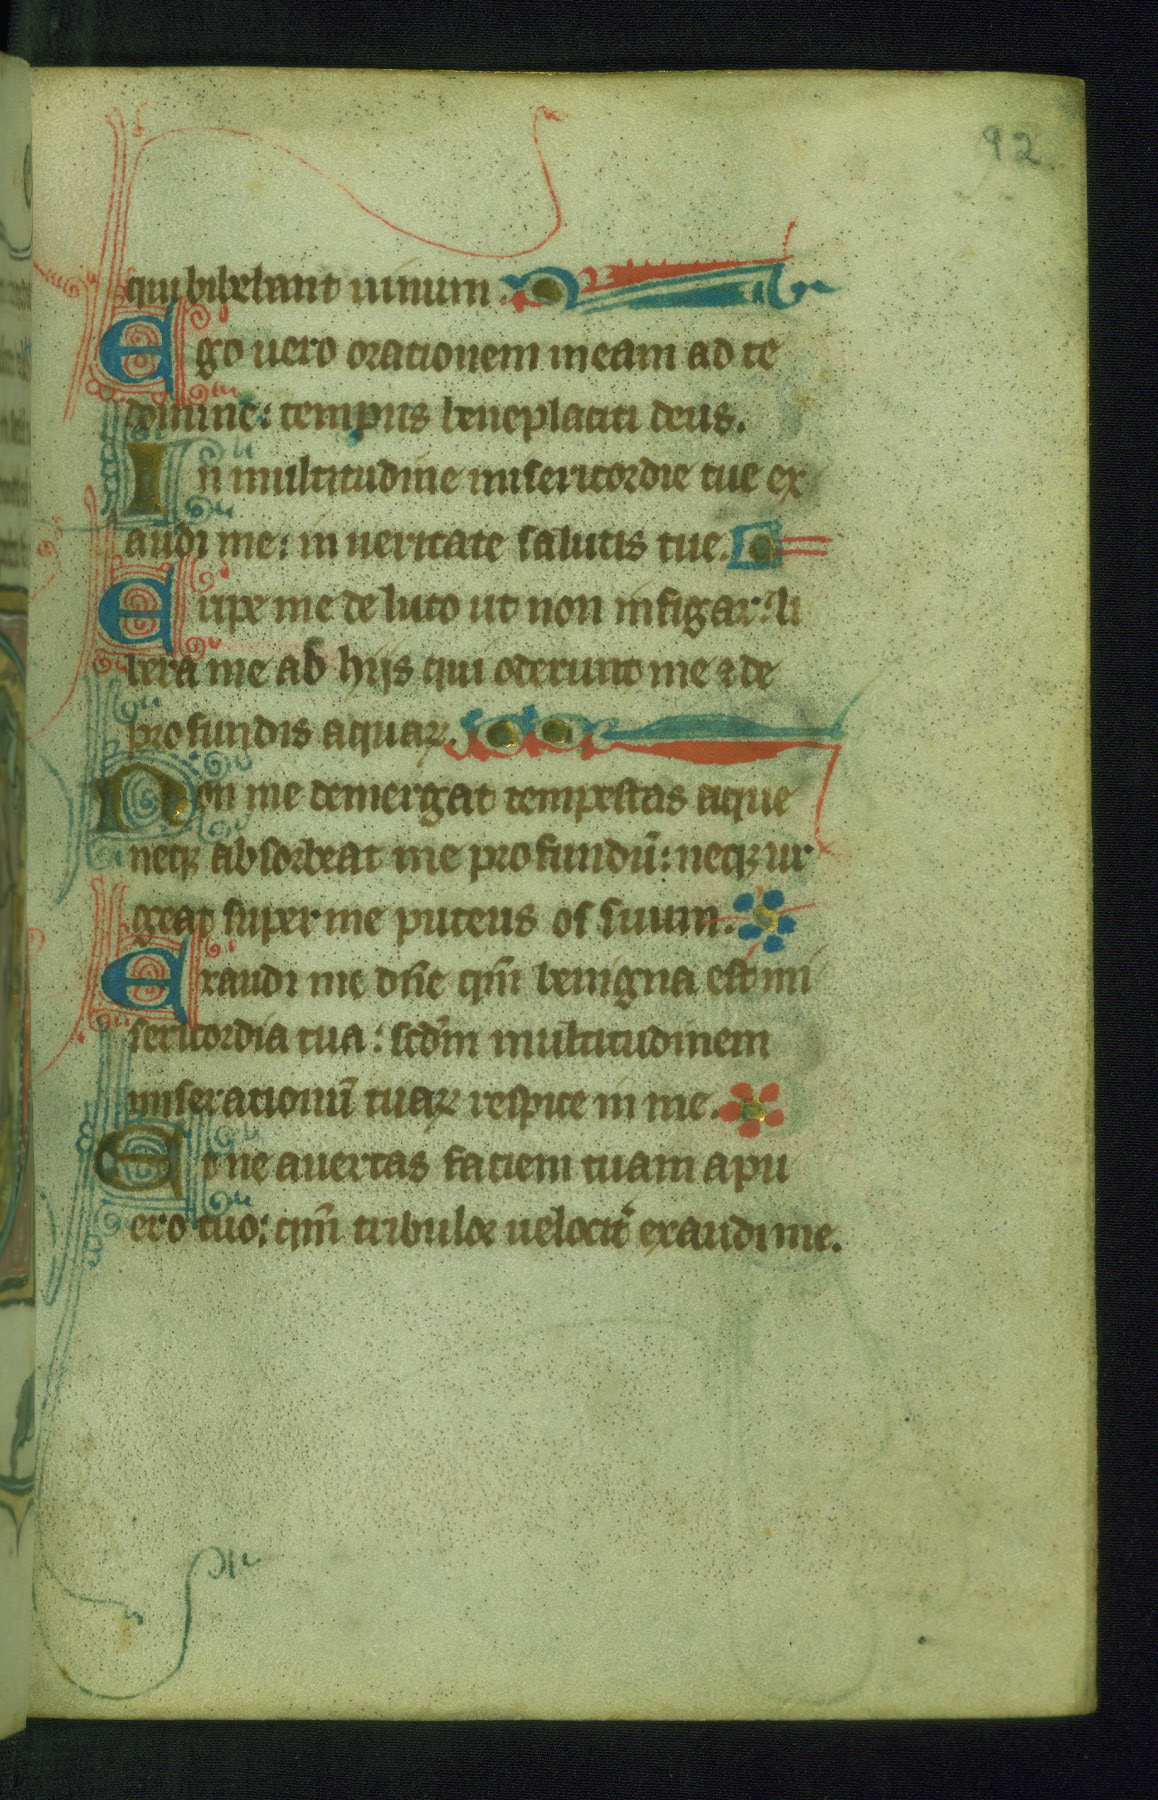 92
qui bibebant uinum.
Ego uero orationem meam ad te
domine: tempus beneplaciti deus.
In multitudine misericordie tue ex
audi me: in ueritate salutis tue.
Eripe me de luto ut non infigar: li
bera me ab hijs qui oderunt me ⁊ de
profundis aquaꝝ.
Non me demergat tempestas aque
neqꝫ absorbeat me profundū: neqꝫ ur
geat super me puteus os suum.
Exaudi me dn̄e qm̄ benigna est mi
sericordia tua: scd̄m multitudinem
miserationū tuaꝝ respice in me.
Et ne auertas faciem tuam a pu
ero tuo: qm̄ tribulor uelocit̉ exaudi me.